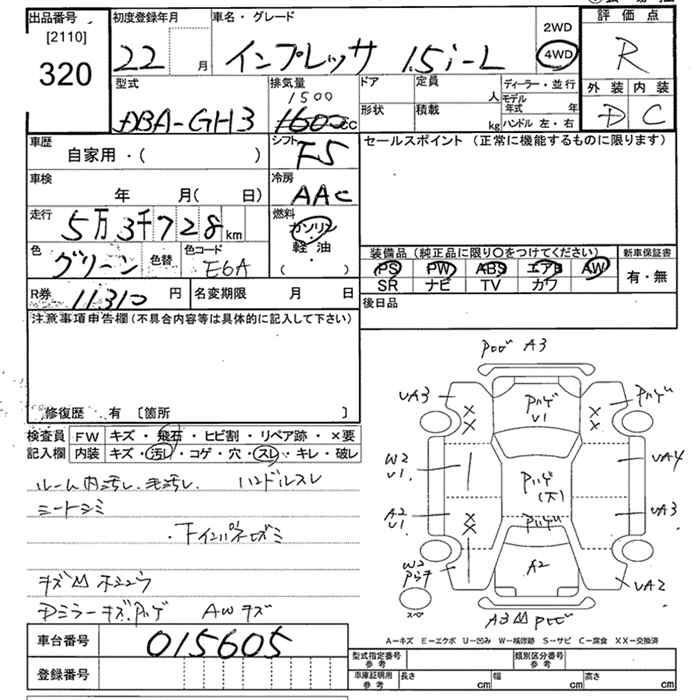 出品番号
[2110]
320
初度登録年月
22 月
車名・グレード
インプレッサ 1.5i-L
2WD
4WD
評価点
R
外装 内装
D C
型式
DBA-GH3
排気量
1500
1600cc
ドア
形状
定員
人
積載
kg
ディーラー・並行
モデル年式 年
ハンドル 左・右
車歴
自家用・( )
シフト
F5
セールスポイント (正常に機能するものに限ります)
車検
年 月( 日)
冷房
AAC
走行
5万3千728km
燃料
ガソリン
軽油
( )
色
グリーン
色替
色コード
E6A
装備品(純正品に限り○をつけてください)
PS PW ABS エアB AW
SR ナビ TV カワ
新車保証書
有・無
R券
11310 円
名変期限 月 日
後日品
注意事項申告欄(不具合内容等は具体的に記入して下さい)
修復歴 有 [箇所 ]
検査員記入欄
FW キズ・飛石・ヒビ割・リペア跡・×要
内装 キズ・汚レ・コゲ・穴・スレ・キレ・破レ
ルーム内汚レ 毛汚レ ハンドルスレ
シートシミ
Pハゲ A3
UA3
Pハゲ
U1
Pハゲ
W2
U1
UA4
Pハゲ
(大)
A2
U1
UA3
Pハゲ
A2
W2
UA2
スペ
A3
A-キズ E-エクボ U-凹み W-補修跡 S-サビ C-腐食 XX-交換済
Dミラーキズ Pハゲ AWキズ
車台番号
015605
登録番号
型式指定番号
参考
類別区分番号
参考
車庫証明用
参考
長さ cm
幅 cm
高さ cm